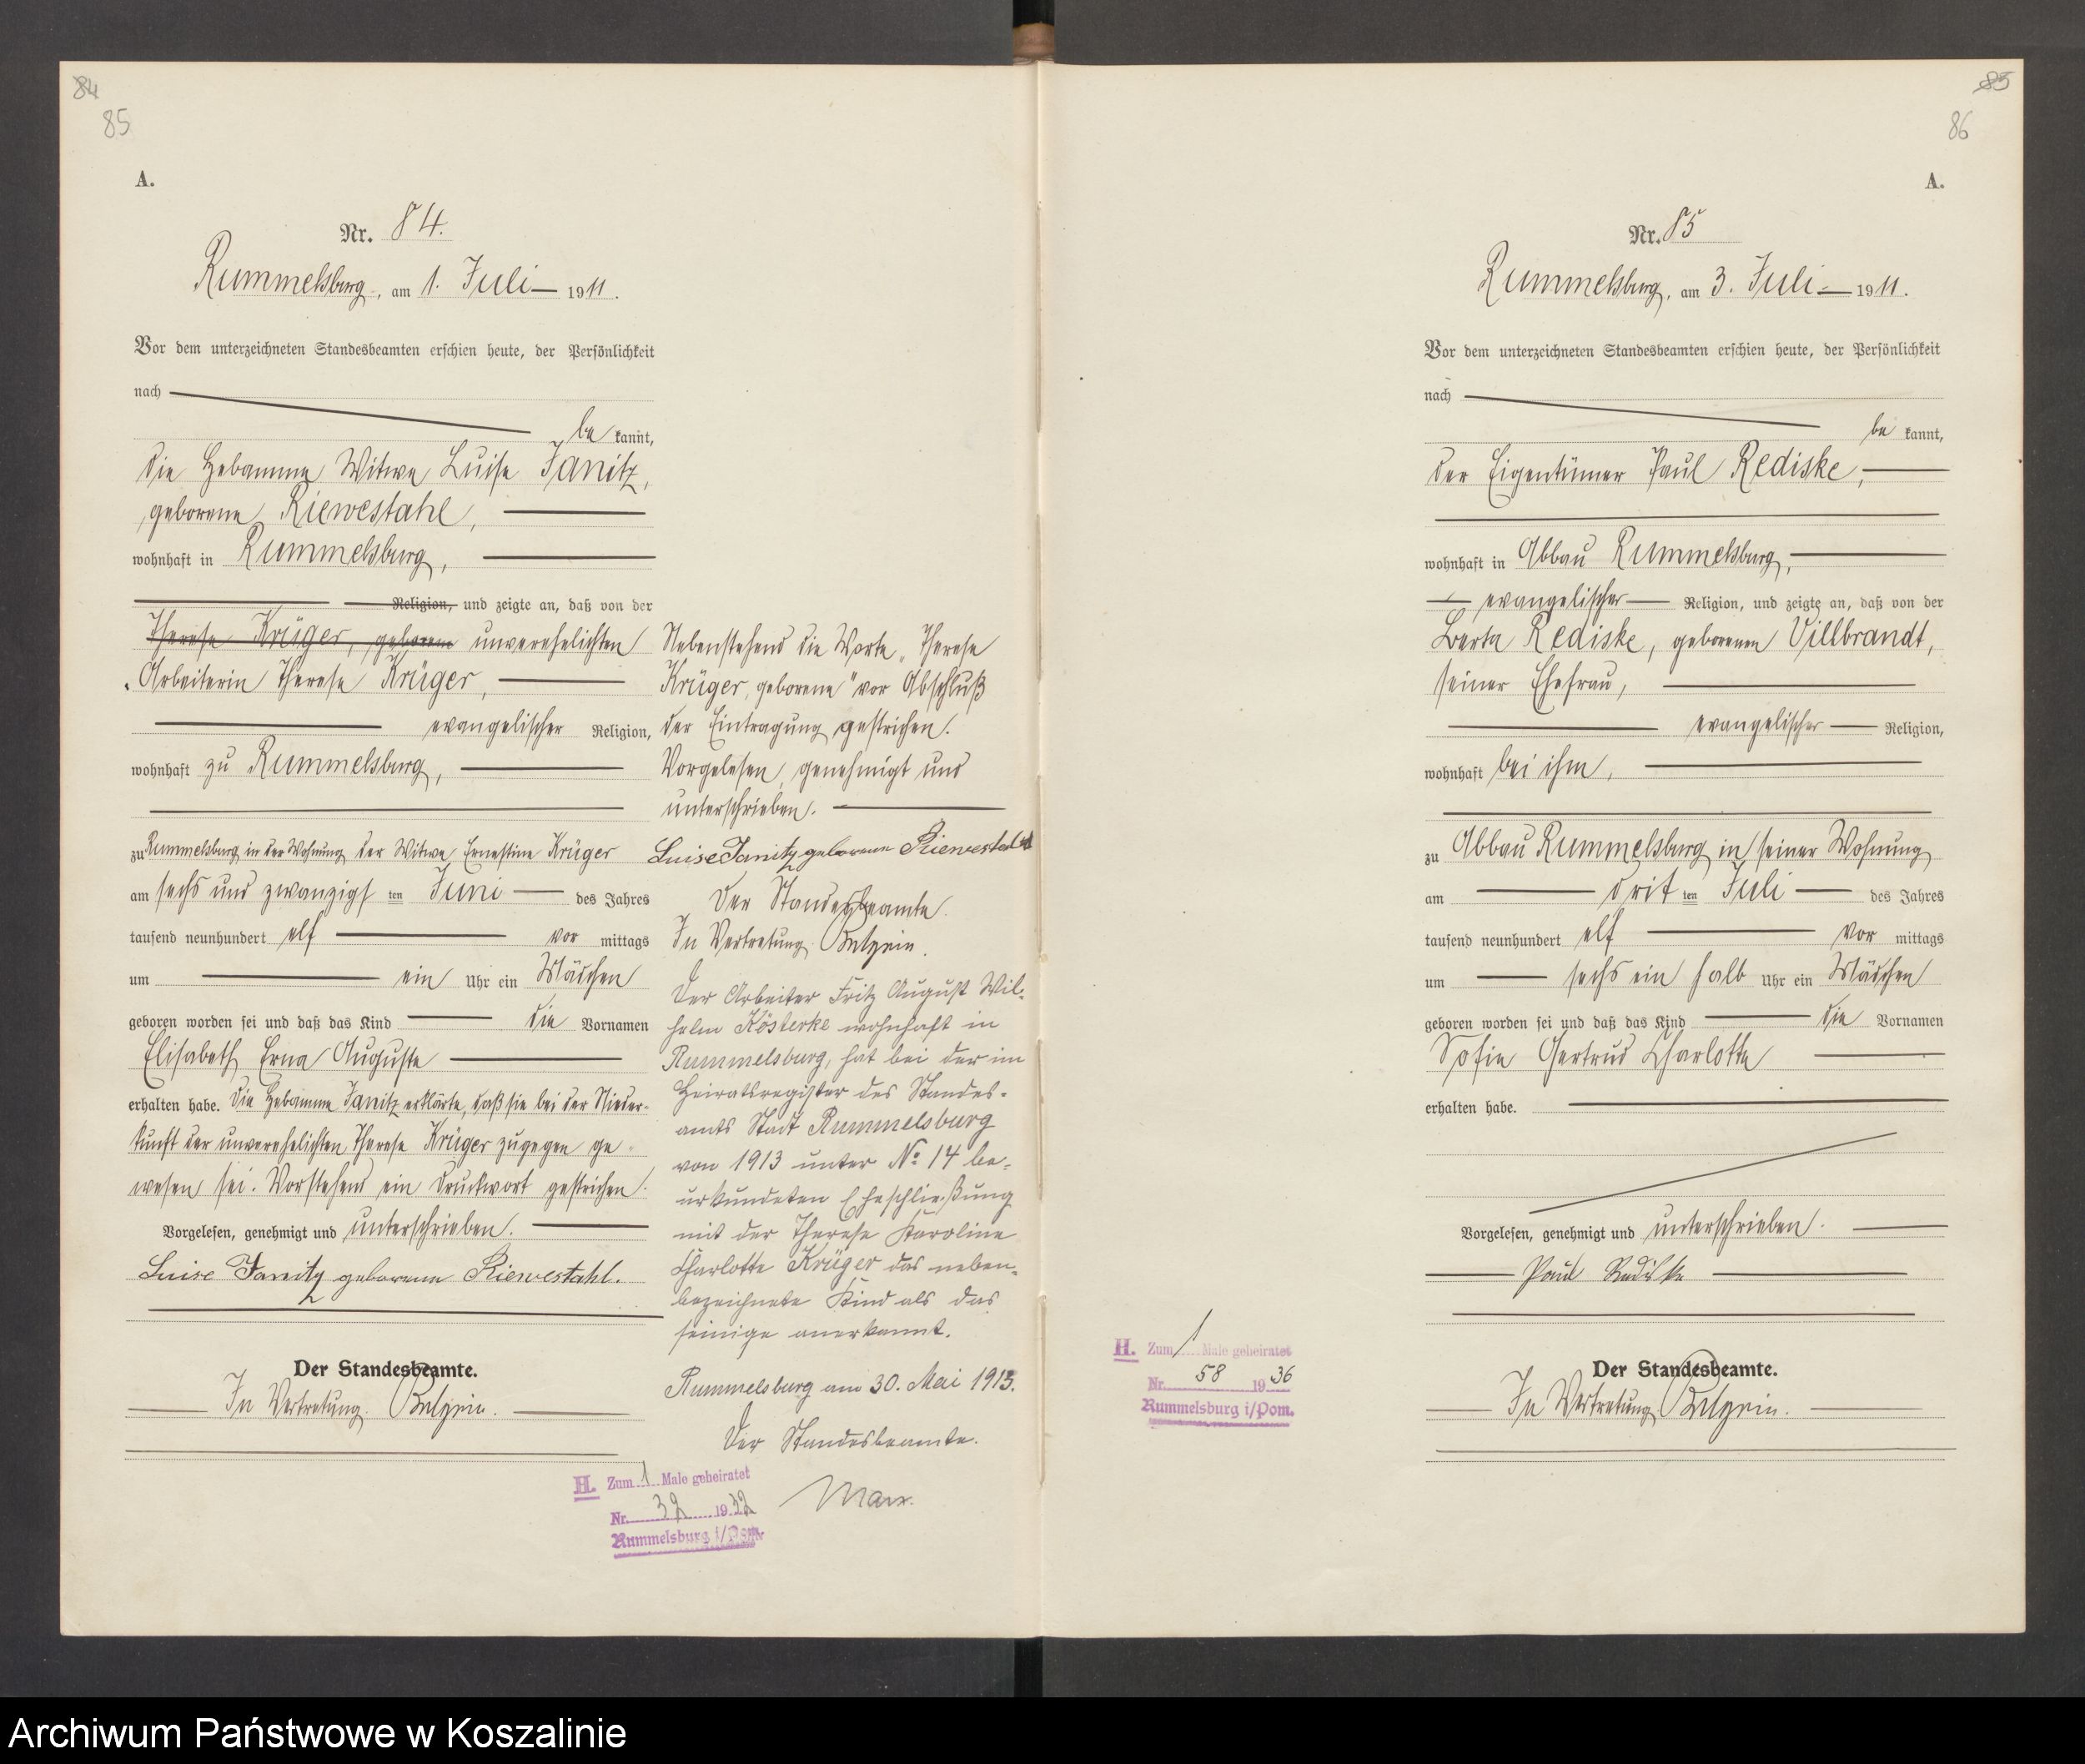 84
85
A.
Nr. 84.
Rummelsburg, am 1. Juli 1911.
Vor dem unterzeichneten Standesbeamten erschien heute, der Persönlichkeit
nach
be kannt,
die Hebamme Witwe Luise Janitz,
geborene Riewestahl,
wohnhaft in Rummelsburg,
Religion, und zeigte an, daß von der
Therese Krüger, geborene unverehelichten
Arbeiterin Therese Krüger,
evangelischer Religion,
wohnhaft zu Rummelsburg,
zu Rummelsburg in der Wohnung der Witwe Ernestine Krüger
am sechs und zwanzigs ten Juni des Jahres
tausend neunhundert elf vor mittags
um ein Uhr ein Mädchen
geboren worden sei und daß das Kind die Vornamen
Elisabeth Erna Auguste
erhalten habe. Die Hebamme Janitz erklärte, daß sie bei der Nieder-
kunft der unverehelichten Therese Krüger zugegen ge
wesen sei. Vorstehend ein Druckwort gestrichen.
Vorgelesen, genehmigt und unterschrieben.
Luise Janitz geborene Riewestahl.
Der Standesbeamte.
In Vertretung.
Nebenstehend die Worte „Therese
Krüger, geborene" vor Abschluß
der Eintragung gestrichen.
Vorgelesen, genehmigt und
unterschrieben.
Luise Janitz geborene Riewestahl
Der Standesbeamte.
In Vertretung
Der Arbeiter Fritz August Wil-
helm Kösterke wohnhaft in
Rummelsburg, hat bei der im
Heiratsregister des Standes-
amts Stadt Rummelsburg
von 1913 unter No 14 be-
urkundeten Eheschließung
mit der Therese Karoline
Charlotte Krüger das neben-
bezeichnete Kind als das
seinige anerkannt.
Rummelsburg am 30. Mai 1913.
Der Standesbeamte.
Marx.
H. Zum 1 Male geheiratet
Nr. 32 1932
Rummelsburg i/Pom.
85
86
A.
Nr. 85
Rummelsburg, am 3. Juli 1911.
Vor dem unterzeichneten Standesbeamten erschien heute, der Persönlichkeit
nach
be kannt,
der Eigentümer Paul Rediske,
wohnhaft in Abbau Rummelsburg,
evangelischer Religion, und zeigte an, daß von der
Berta Rediske, geborenen Villbrandt,
seiner Ehefrau,
evangelischer Religion,
wohnhaft bei ihm,
zu Abbau Rummelsburg in seiner Wohnung
am drit ten Juli des Jahres
tausend neunhundert elf vor mittags
um sechs ein halb Uhr ein Mädchen
geboren worden sei und daß das Kind die Vornamen
Sofie Gertrud Charlotte
erhalten habe.
Vorgelesen, genehmigt und unterschrieben.
Paul Rediske
Der Standesbeamte.
In Vertretung
H. Zum 1 Male geheiratet
Nr. 58 1936
Rummelsburg i/Pom.
Archiwum Państwowe w Koszalinie